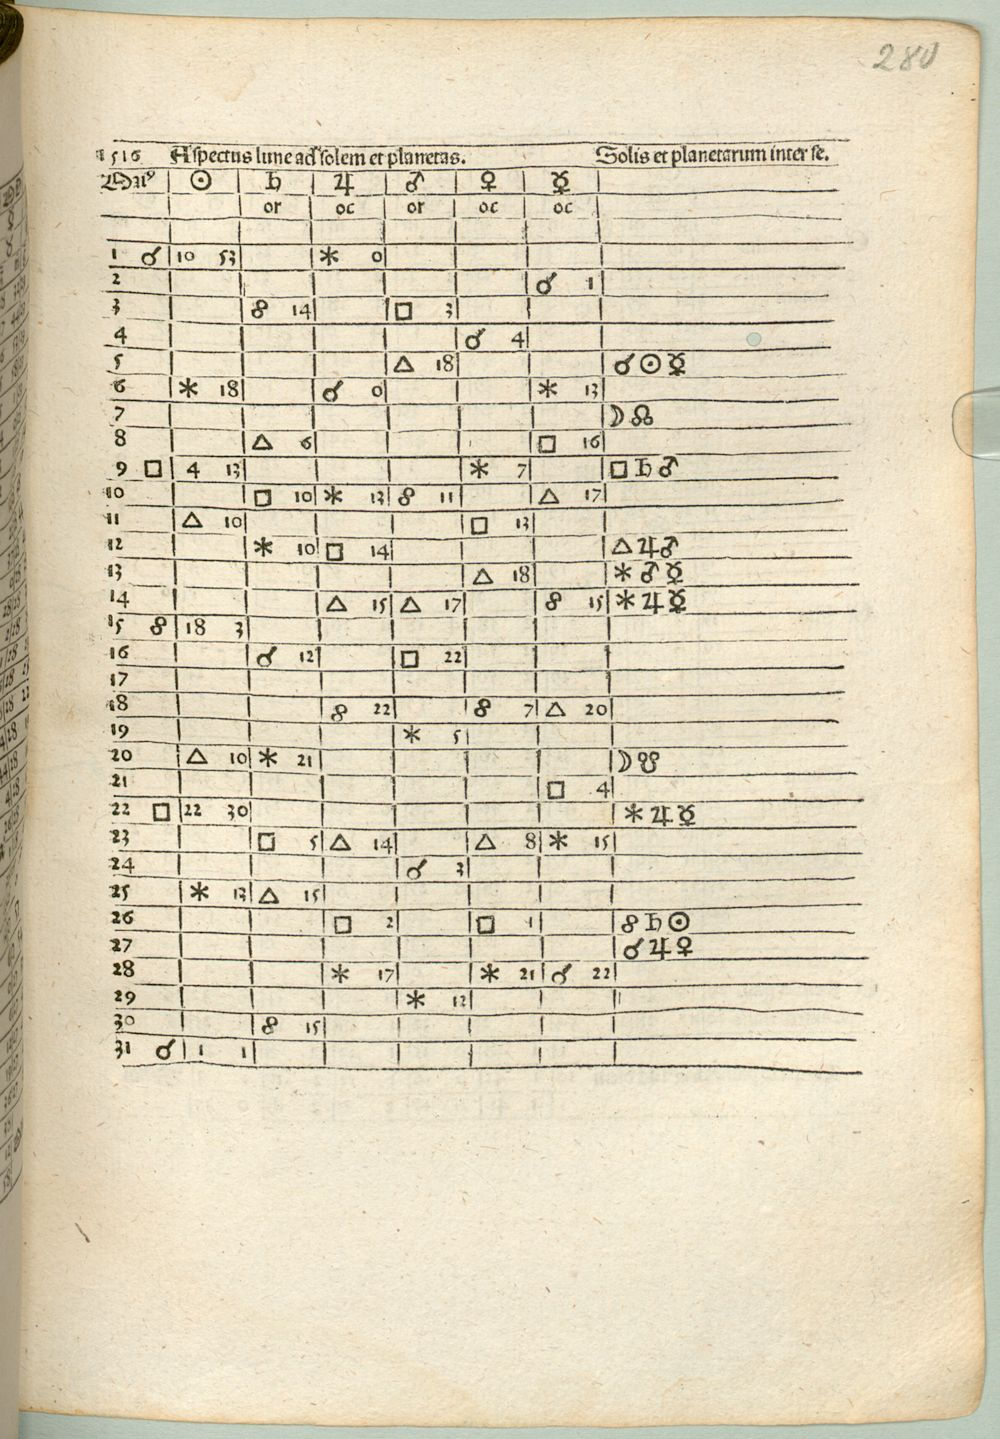 280
1516 Aspectus lune ad solem et planetas. Solis et planetarum inter se.
☉ ♄ ♃ ♂ ♀ ☿
or oc or oc oc
1 ☌ 10 53 ⚹ 0
2 ☌ 1
3 ☍ 14 □ 3
4 ☌ 4
5 △ 18 ☌ ☉ ☿
6 ⚹ 18 ☌ 0 ⚹ 13
7 ☽ ☊
8 △ 6 □ 16
9 □ 4 13 ⚹ 7 □ ♄ ♂
10 □ 10 ⚹ 13 ☍ 11 △ 17
11 △ 10 □ 13
12 ⚹ 10 □ 14 △ ♃ ♂
13 △ 18 ⚹ ♂ ☿
14 △ 15 △ 17 ☍ 15 ⚹ ♃ ☿
15 ☍ 18 3
16 ☌ 12 □ 22
17
18 ☍ 22 ☍ 7 △ 20
19 ⚹ 5
20 △ 10 ⚹ 21 ☽ ☋
21 □ 4
22 □ 22 30 ⚹ ♃ ☿
23 □ 5 △ 14 △ 8 ⚹ 15
24 ☌ 3
25 ⚹ 13 △ 15
26 □ 2 □ 1 ☍ ♄ ☉
27 ☌ ♃ ♀
28 ⚹ 17 ⚹ 21 ☌ 22
29 ⚹ 12
30 ☍ 15
31 ☌ 1 1